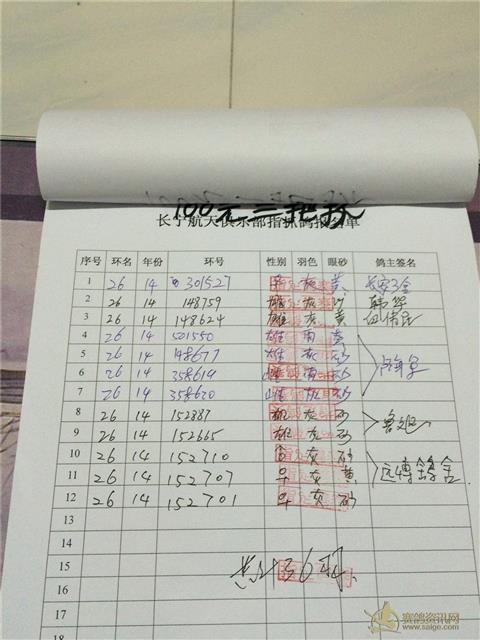 100元二把抓
长宁航天俱乐部指抓鸽报名单
序号 环名 年份 环号 性别 羽色 眼砂 鸽主签名
1 26 14 301527 灰 黄
2 26 14 148759 雄 灰 沙
3 26 14 148624 雄 灰 黄
4 26 14 501550 雄 雨 黄
5 26 14 148677 雄 灰 砂
6 26 14 358619 雄 雨 砂
7 26 14 358620 雄 灰 砂
8 26 14 152887 灰 砂
9 26 14 152665 灰 砂
10 26 14 152710 灰 砂
11 26 14 152707 灰 黄 鸽舍
12 26 14 152701 灰 砂
13
14
15 共计36羽
16
17
18
赛鸽资讯网
www.saige.com